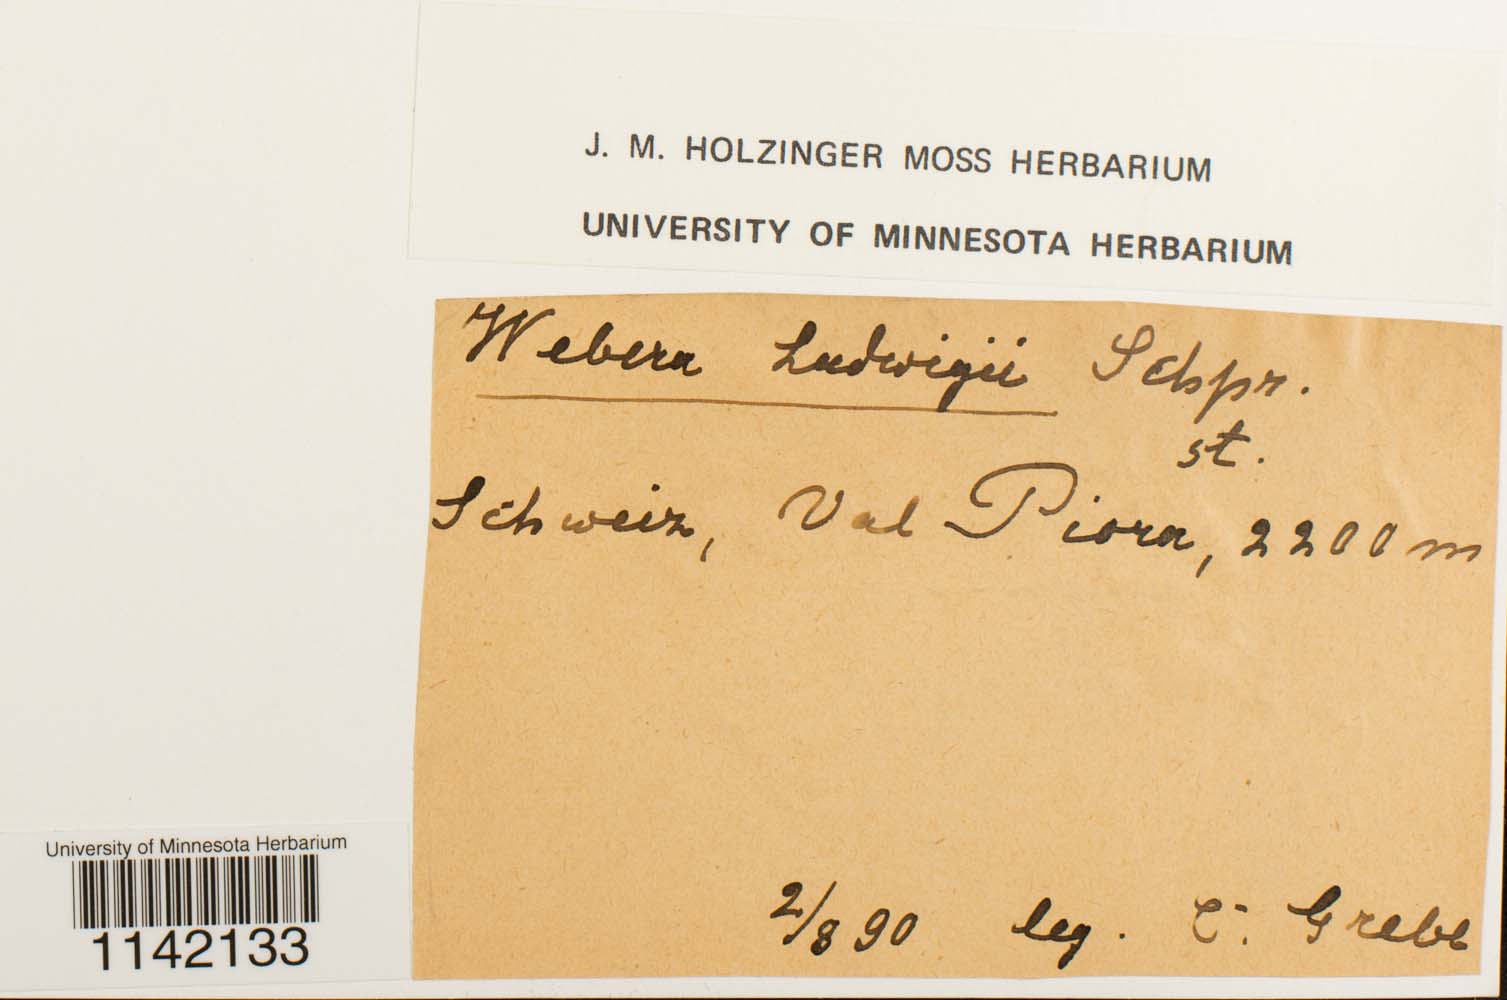 J. M. HOLZINGER MOSS HERBARIUM
UNIVERSITY OF MINNESOTA HERBARIUM
Webera Ludwigii Schpr.
st.
Schweiz, Val Piora, 2200 m
2/8 90 leg. C. Grebe
University of Minnesota Herbarium
1142133